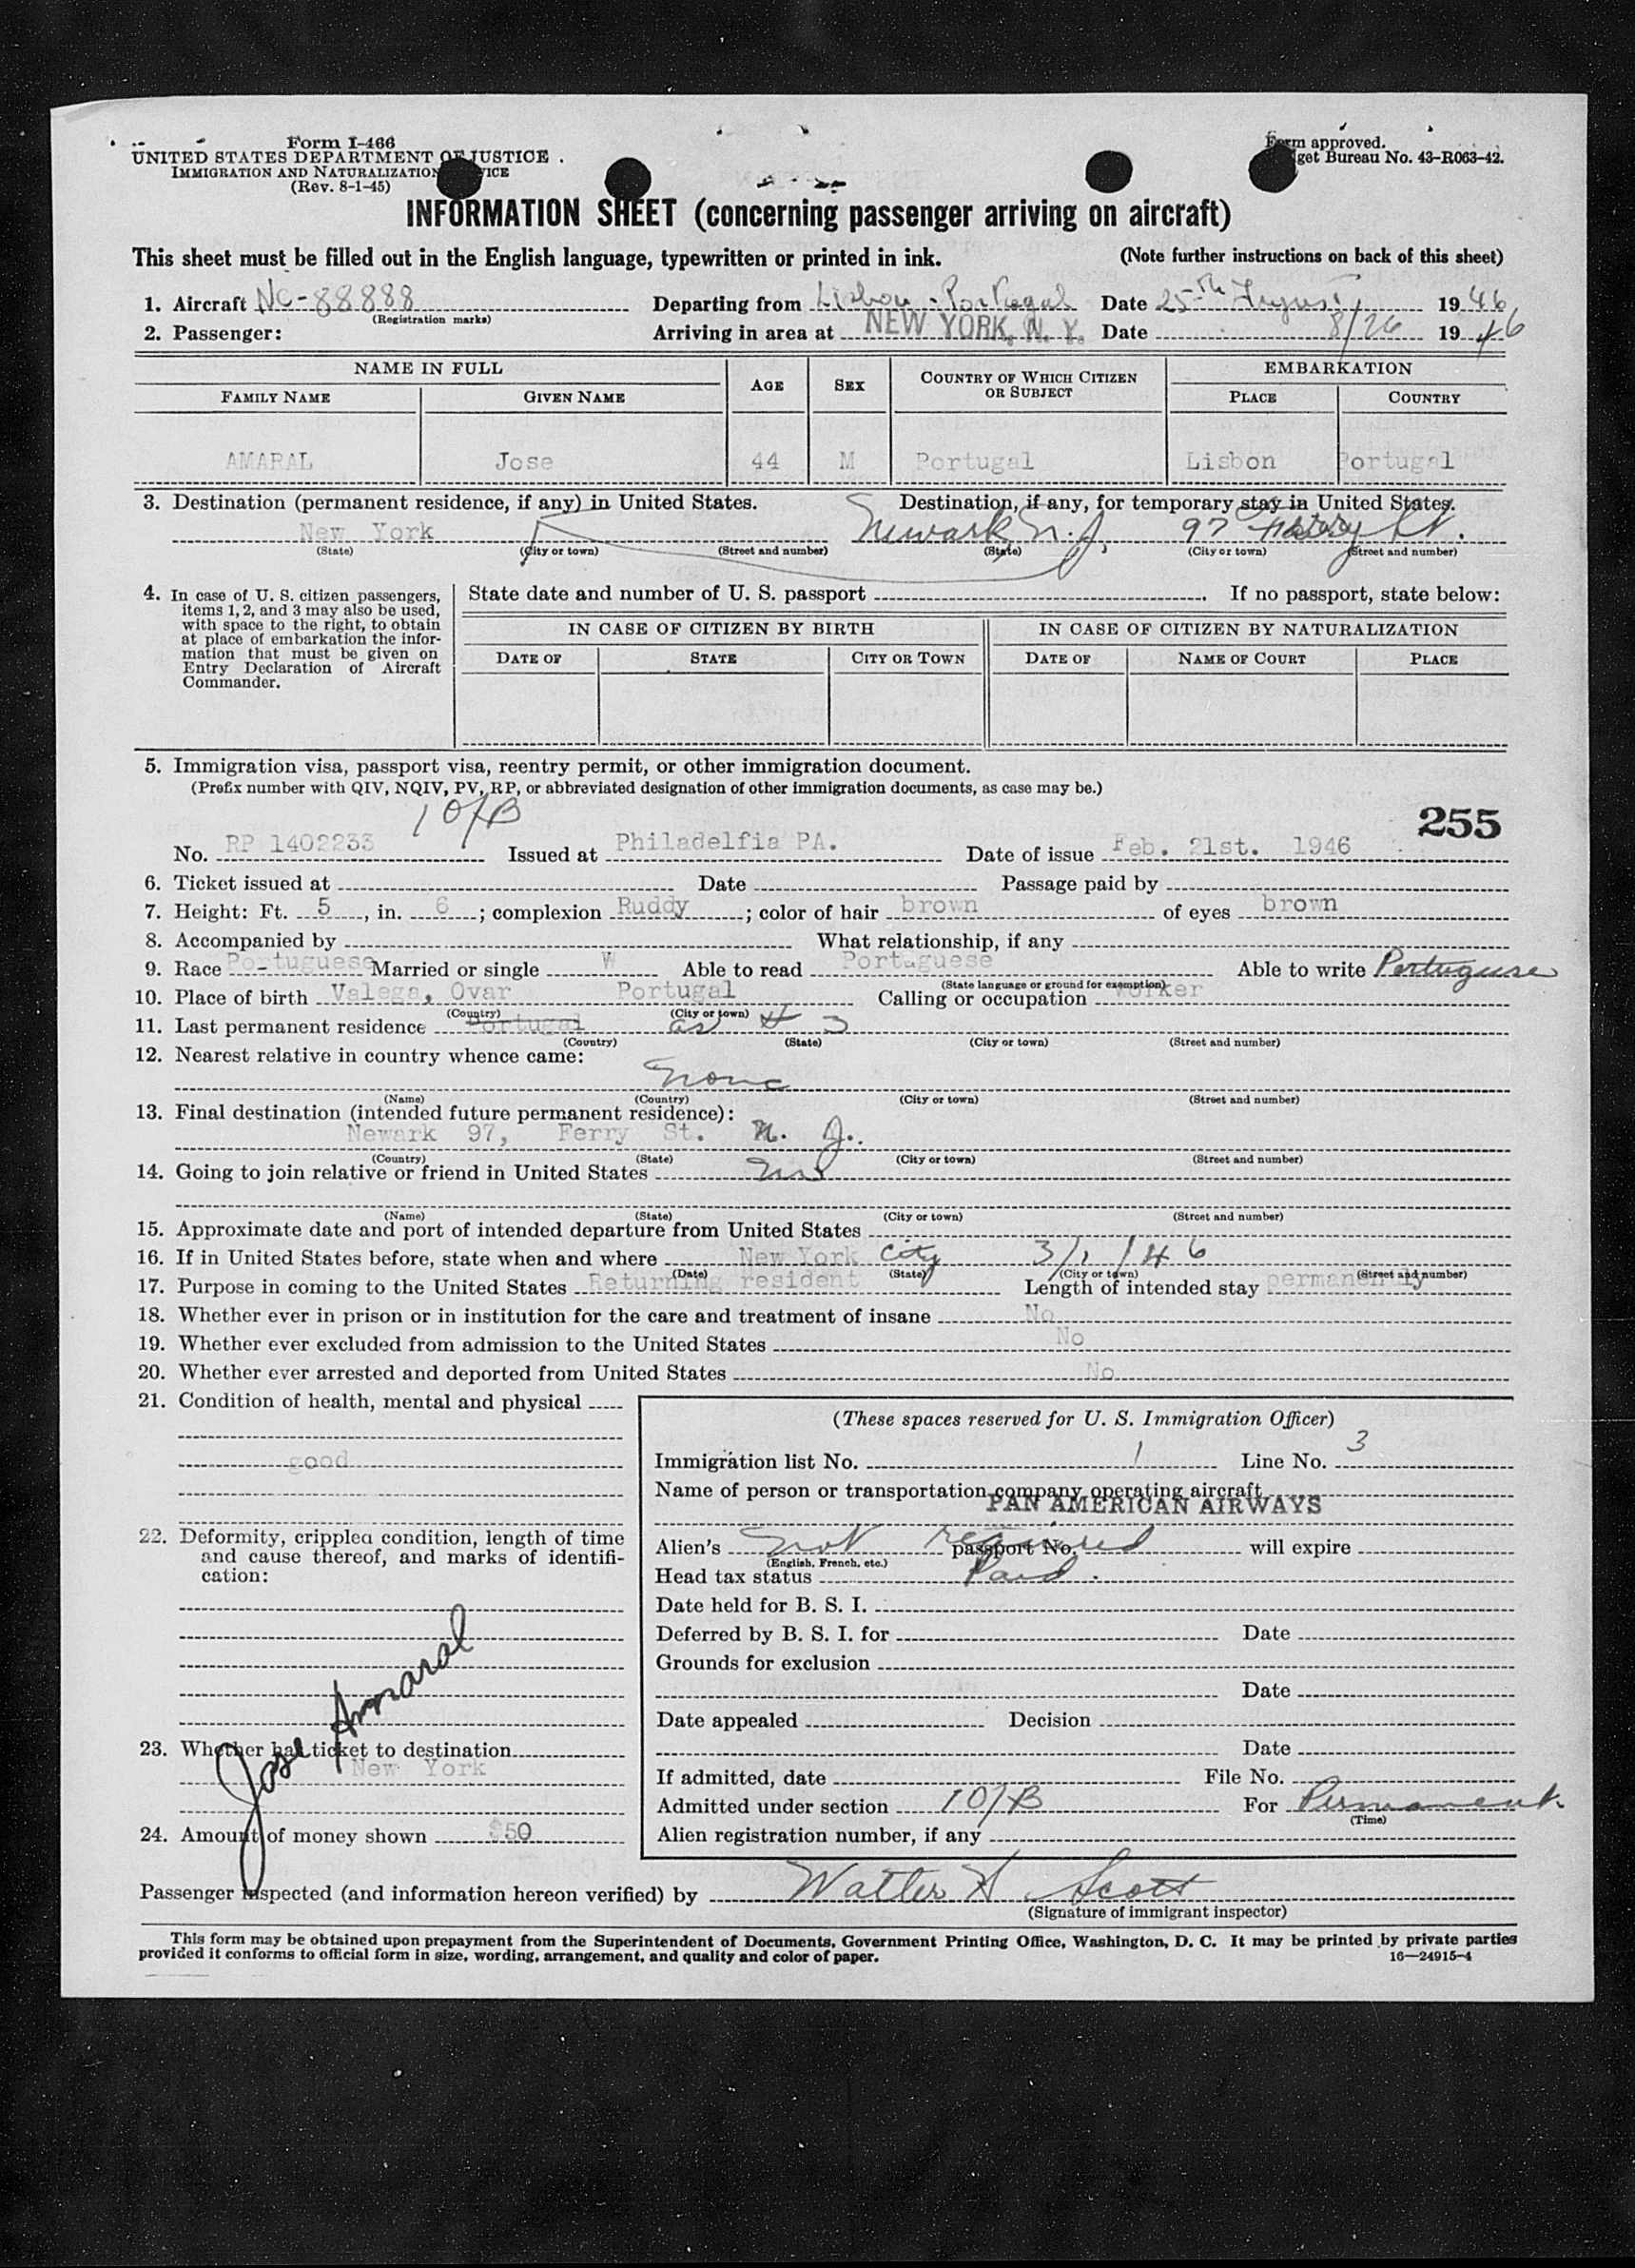 Form I-466
UNITED STATES DEPARTMENT OF JUSTICE
IMMIGRATION AND NATURALIZATION VICE
(Rev. 8-1-45)
Form approved.
get Bureau No. 43-R063-42.
INFORMATION SHEET (concerning passenger arriving on aircraft)
This sheet must be filled out in the English language, typewritten or printed in ink. (Note further instructions on back of this sheet)
1. Aircraft NC-88888 Departing from Lisbon - Portugal Date 25th August, 1946
(Registration marks)
2. Passenger: Arriving in area at NEW YORK, N. Y. Date 8/26 1946
NAME IN FULL AGE SEX COUNTRY OF WHICH CITIZEN OR SUBJECT EMBARKATION
FAMILY NAME GIVEN NAME PLACE COUNTRY
AMARAL Jose 44 M Portugal Lisbon Portugal
3. Destination (permanent residence, if any) in United States. Destination, if any, for temporary stay in United States.
New York Newark, N. J. 97 Ferry St.
(State) (City or town) (Street and number) (State) (City or town) (Street and number)
4. In case of U. S. citizen passengers, items 1, 2, and 3 may also be used, with space to the right, to obtain at place of embarkation the information that must be given on Entry Declaration of Aircraft Commander.
State date and number of U. S. passport If no passport, state below:
IN CASE OF CITIZEN BY BIRTH IN CASE OF CITIZEN BY NATURALIZATION
DATE OF STATE CITY OR TOWN DATE OF NAME OF COURT PLACE
5. Immigration visa, passport visa, reentry permit, or other immigration document.
(Prefix number with QIV, NQIV, PV, RP, or abbreviated designation of other immigration documents, as case may be.)
10/B 255
No. RP 1402233 Issued at Philadelfia PA. Date of issue Feb. 21st. 1946
6. Ticket issued at Date Passage paid by
7. Height: Ft. 5, in. 6; complexion Ruddy; color of hair brown of eyes brown
8. Accompanied by What relationship, if any
9. Race Portuguese Married or single W Able to read Portuguese Able to write Portuguese
(State language or ground for exemption)
10. Place of birth Valega, Ovar Portugal Calling or occupation Worker
(Country) (City or town)
11. Last permanent residence Portugal as # 3
(Country) (State) (City or town) (Street and number)
12. Nearest relative in country whence came:
None
(Name) (Country) (City or town) (Street and number)
13. Final destination (intended future permanent residence):
Newark 97, Ferry St. N. J.
(Country) (State) (City or town) (Street and number)
14. Going to join relative or friend in United States no
(Name) (State) (City or town) (Street and number)
15. Approximate date and port of intended departure from United States
16. If in United States before, state when and where New York City 3/1/46
(Date) (State) (City or town) (Street and number)
17. Purpose in coming to the United States Returning resident Length of intended stay permanently
18. Whether ever in prison or in institution for the care and treatment of insane No
19. Whether ever excluded from admission to the United States No
20. Whether ever arrested and deported from United States No
21. Condition of health, mental and physical
good
22. Deformity, crippled condition, length of time and cause thereof, and marks of identification:
Jose Amaral
23. Whether has ticket to destination
New York
24. Amount of money shown $50
(These spaces reserved for U. S. Immigration Officer)
Immigration list No. 1 Line No. 3
Name of person or transportation company operating aircraft
PAN AMERICAN AIRWAYS
Alien's not required passport No. will expire
(English, French, etc.)
Head tax status Paid.
Date held for B. S. I.
Deferred by B. S. I. for Date
Grounds for exclusion
Date
Date appealed Decision
Date
If admitted, date File No.
Admitted under section 10/B For Permanent.
(Time)
Alien registration number, if any
Passenger inspected (and information hereon verified) by Walter H Scott
(Signature of immigrant inspector)
This form may be obtained upon prepayment from the Superintendent of Documents, Government Printing Office, Washington, D. C. It may be printed by private parties
provided it conforms to official form in size, wording, arrangement, and quality and color of paper. 16—24915-4